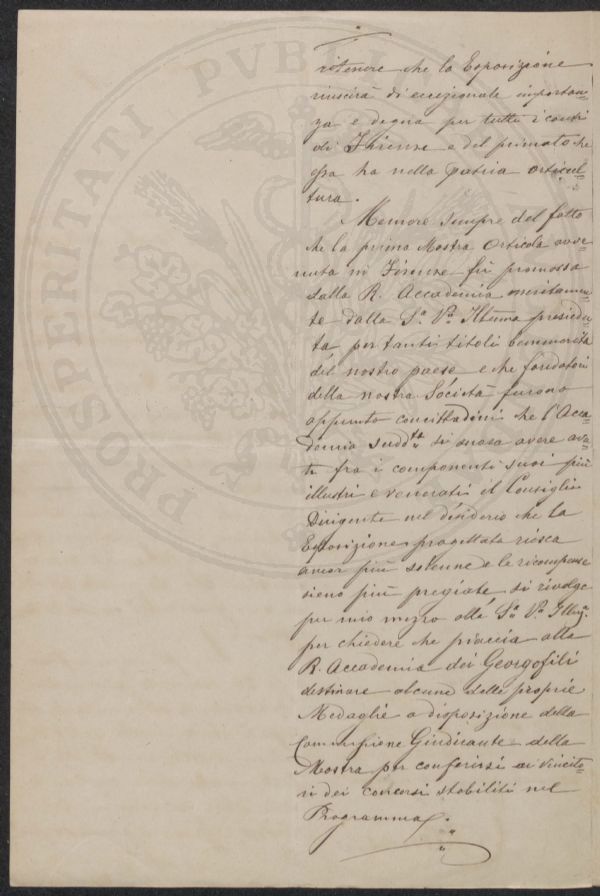 ritenere che la Esposizione
riuscirà di eccezionale importan=
za e degna per tutti i conti
di Firenze e del primato che
essa ha nella patria orticul=
tura.
Memore sempre del fatto
che la prima Mostra Orticola avve=
nuta in Firenze fù promossa
dalla R. Accademia meritamen=
te dalla S.a V.a Ill.ma presiedu=
ta per tanti titoli benemerita
del nostro paese e che fondatori
della nostra Società furono
appunto concittadini che l'Acca=
demia sudd.ta si onora avere avu=
ti fra i componenti suoi più
illustri e venerati il Consiglio
Dirigente nel desiderio che la
Esposizione progettata riesca
ancor più solenne e le ricompense
sieno più pregiate si rivolge
per mio mezzo alla S.a V.a Ill.ma
per chiedere che piaccia alla
R. Accademia dei Georgofili
destinare alcune delle proprie
Medaglie a disposizione della
Commissione Giudicante della
Mostra per conferirsi ai vincito=
ri dei concorsi stabiliti nel
Programma.
PROSPERITATI PVBL